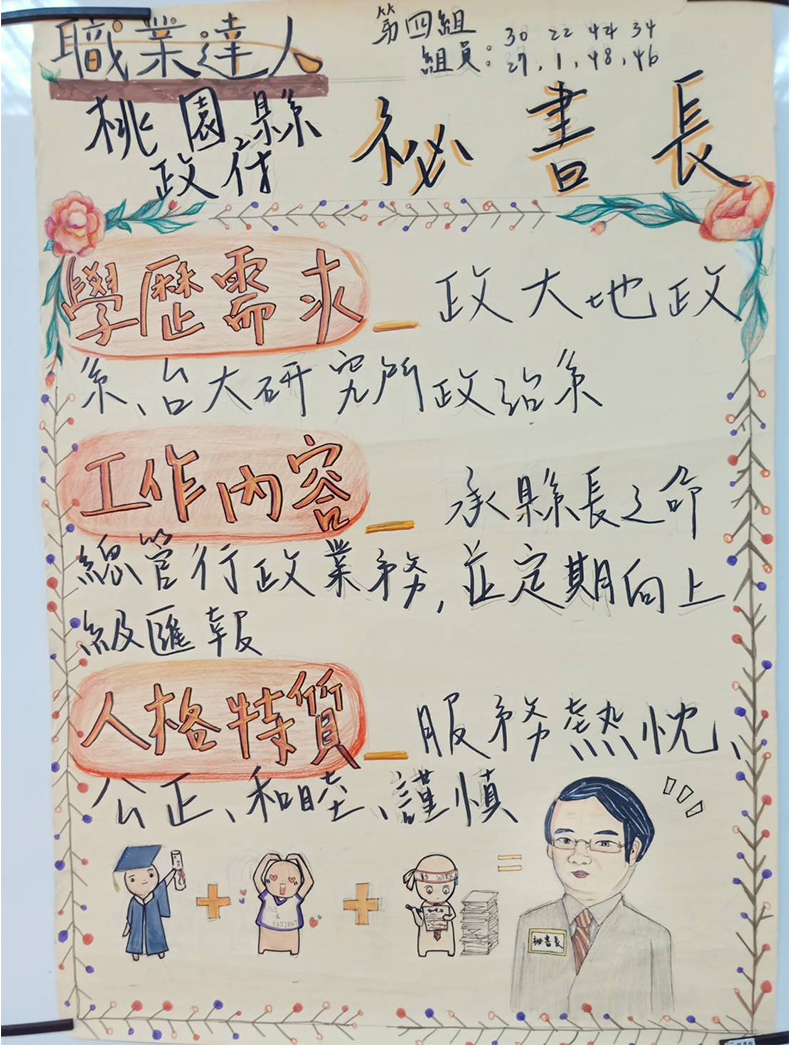 職業達人
第四組
組員：30 22 42 34
27、1、48、46
桃園縣
政府
祕書長
學歷需求_政大地政
系、台大研究所政治系
工作內容_承縣長之命
總管行政業務，並定期向上
級匯報
人格特質_服務熱忱、
公正、和睦、謹慎
+ + =
祕書長